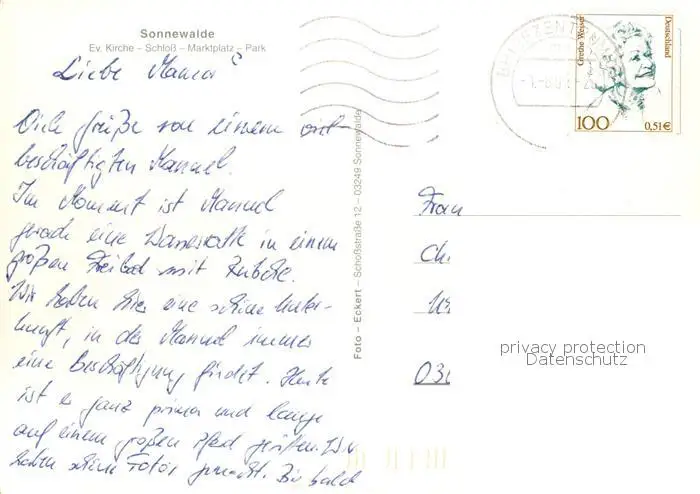 Sonnewalde
Ev. Kirche – Schloß – Marktplatz – Park
Liebe Mama
Viele Grüße von einem viel
beschäftigten Manuel.
Im Moment ist Manuel
gerade eine Wasserratte in einem
großen Freibad mit Rutsche.
Wir haben hier eine schöne Unter-
kunft, in der Manuel immer
eine Beschäftigung findet. Heute
ist er ganz prima und lange
auf einem großen Pferd geritten. Wir
haben schöne Fotos gemacht. Bis bald
Foto – Eckert – Schloßstraße 12 – 03249 Sonnewalde
Grethe Weiser
Deutschland
100
0,51€
BRIEFZENTRUM
Frau
Ch
03
privacy protection
Datenschutz